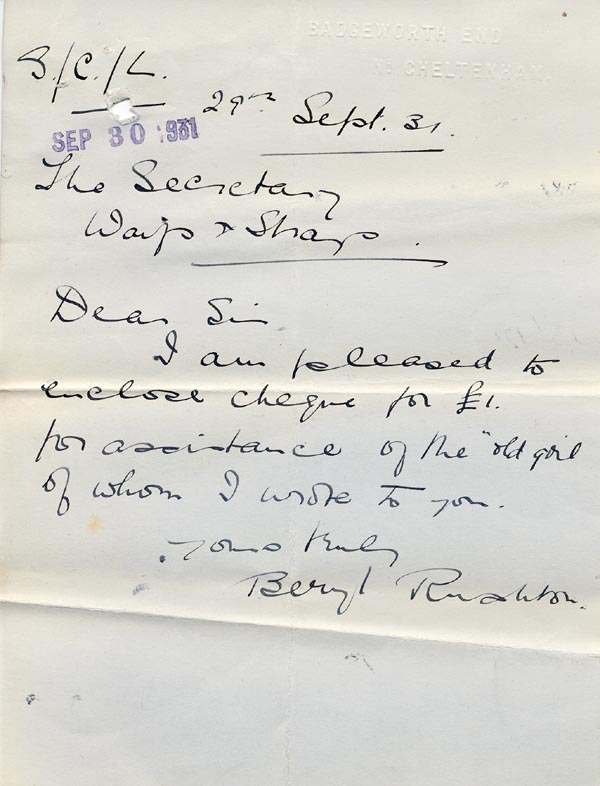 BADGEWORTH END
Nr CHELTENHAM.
S./C./L.
29th Sept. 31.
SEP 30 1931
The Secretary
Waifs & Strays.
Dear Sir
I am pleased to
enclose cheque for £1.
for assistance of the "old girl
of whom I wrote to you.
Yours truly
Beryl Rushton.